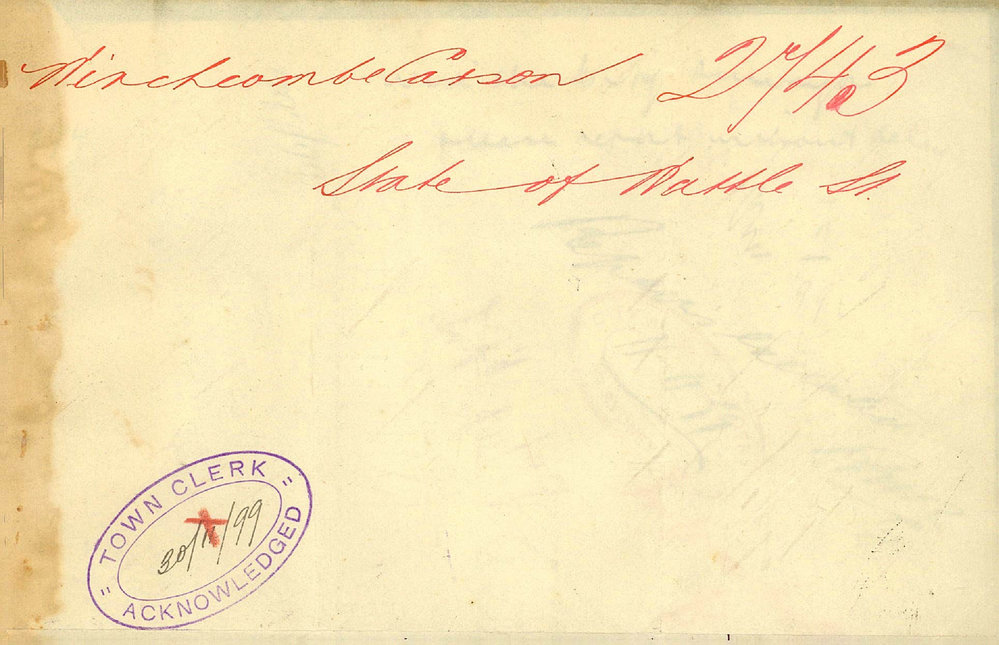 Winchcombe Carson 2743
State of Wattle St.
TOWN CLERK
30/11/99
ACKNOWLEDGED